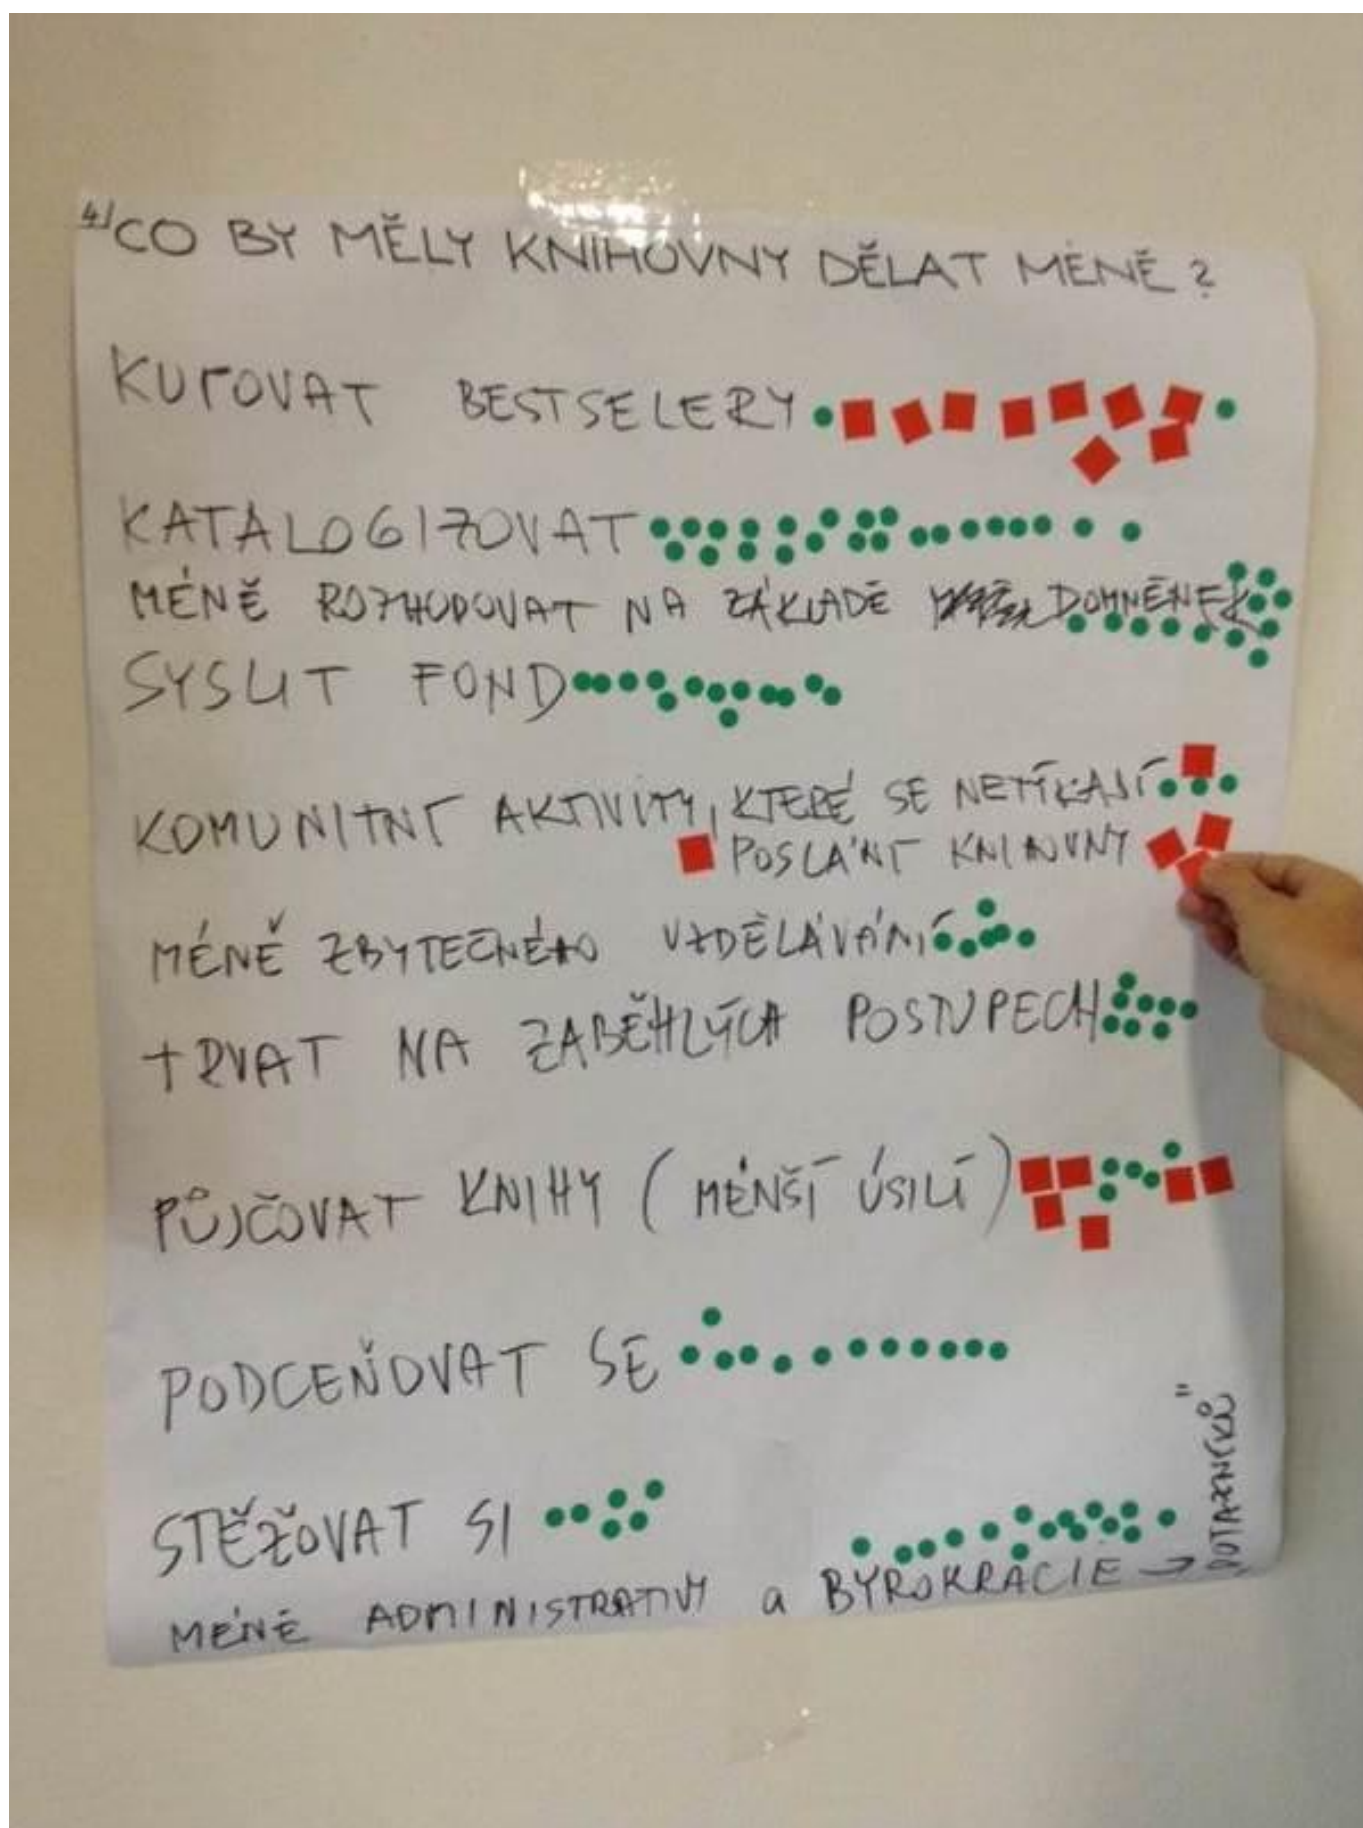 4) CO BY MĚLY KNIHOVNY DĚLAT MÉNĚ ?
KUPOVAT BESTSELERY
KATALOGIZOVAT
MÉNĚ ROZHODOVAT NA ZÁKLADĚ DOMNĚNEK
SYSLIT FOND
KOMUNITNÍ AKTIVITY, KTERÉ SE NETÝKAJÍ
POSLÁNÍ KNIHOVNY
MÉNĚ ZBYTEČNÉHO VZDĚLÁVÁNÍ
TRVAT NA ZABĚHLÝCH POSTUPECH
PŮJČOVAT KNIHY ( MENŠÍ ÚSILÍ )
PODCEŇOVAT SE
STĚŽOVAT SI
MÉNĚ ADMINISTRATIVY a BYROKRACIE → DOTAZNÍKŮ"